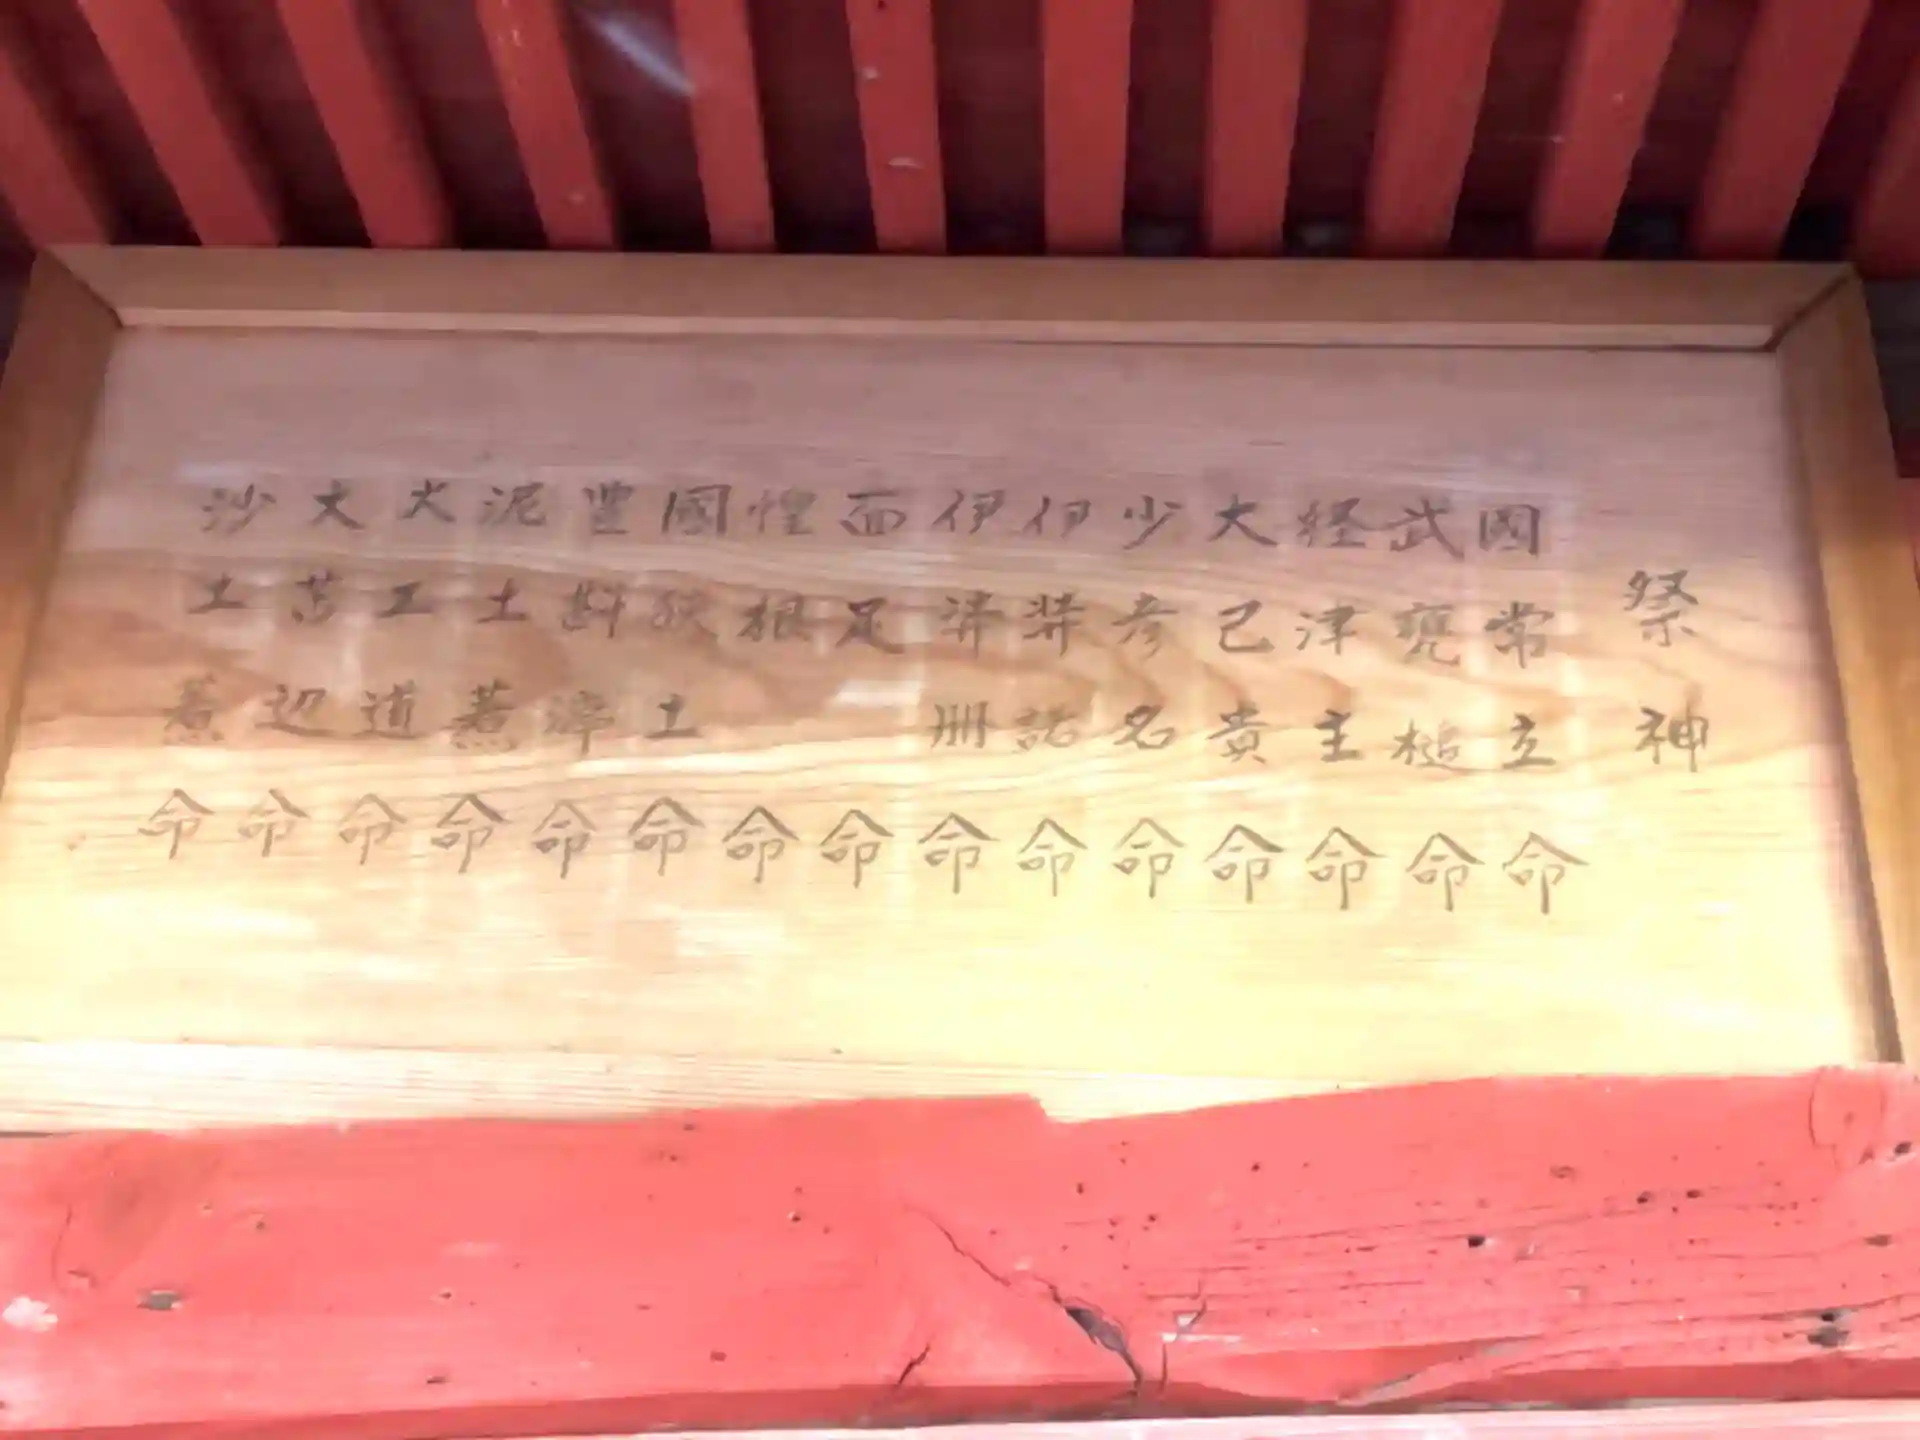 祭神
国常立命
武甕槌命
経津主命
大己貴命
少彦名命
伊弉諾命
伊弉冊命
面足命
惶根命
國狭土命
豊斟渟命
泥土煮命
大工道命
大苫辺命
沙土煮命